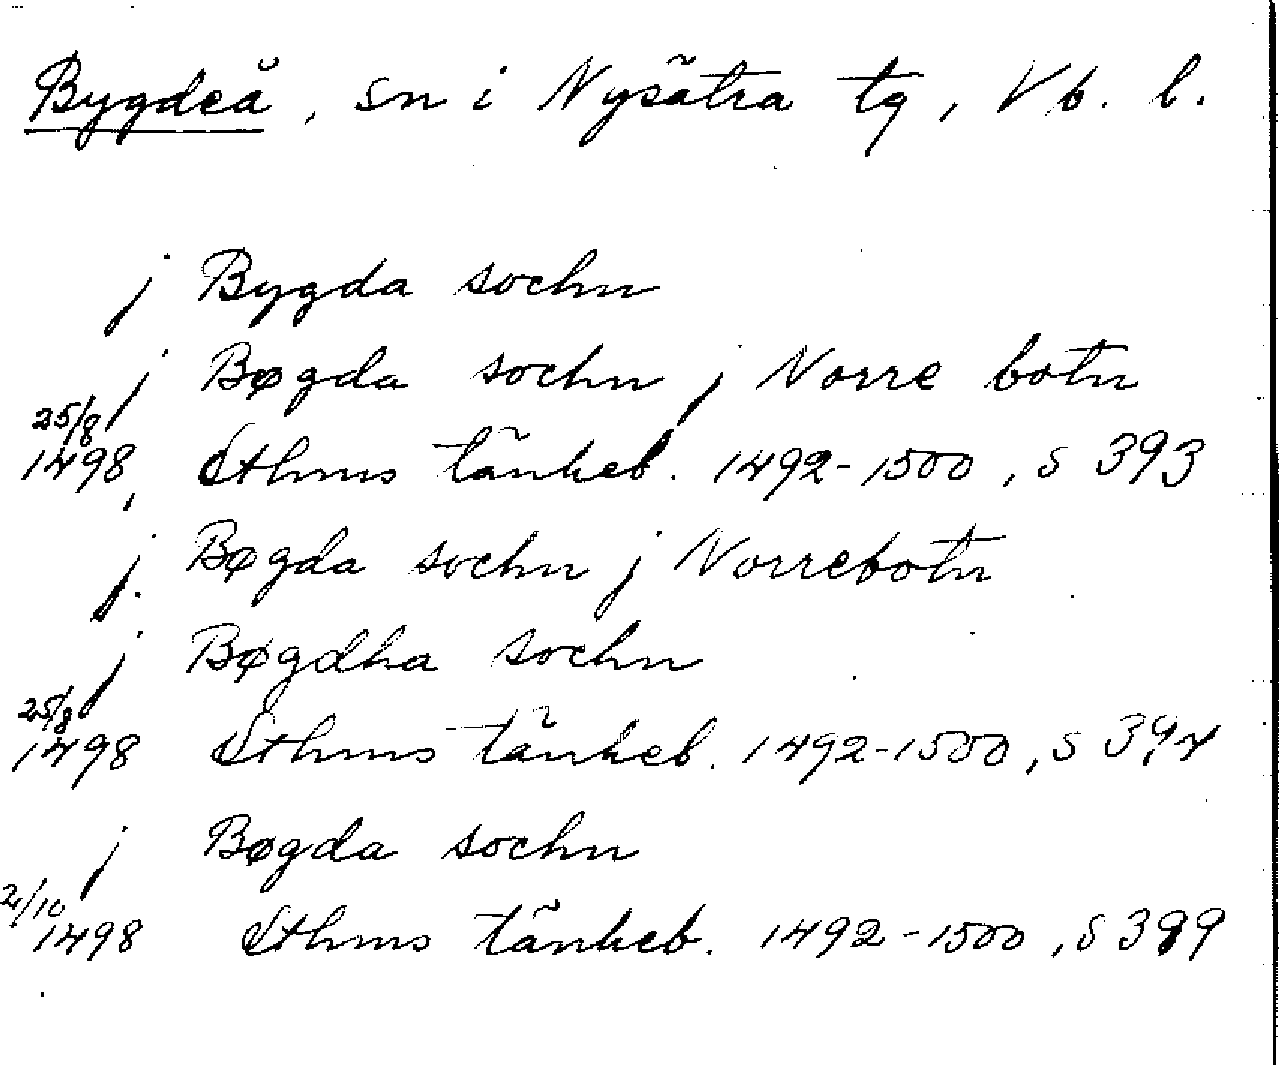 Bygdeå, sn i Nysätra tg, Vb. l.
j Bygda sochn
j Bøgda sochn j Norre botn
25/8
1498, Sthms tänkeb. 1492-1500, s 393
j. Bøgda sochn j Norrebotn
j Bøgdha sochn
25/8
1498 Sthms tänkeb. 1492-1500, s 394
j Bøgda sochn
2/10
1498 Sthms tänkeb. 1492-1500, s 399